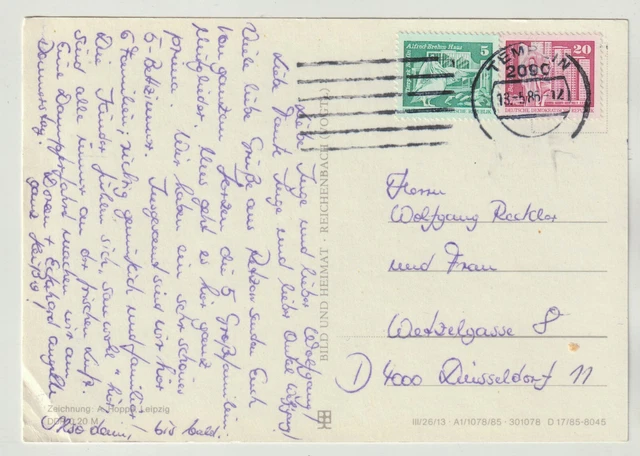 Liebe Inge und lieber Wolfgang,
liebe Tante Inge und lieber Onkel Wolfgang!
Viele liebe Grüße aus Retzow senden Euch
von ganzem Herzen die 5 Großfamilien
mitglieder. Uns geht es hier ganz
prima. Wir haben ein sehr schönes
5-Bettzimmer. Insgesamt sind wir hier
6 Familien, richtig gemütlich und familiär!
Die Kinder fühlen sich "sauwohl" hier,
sind alle immer an der frischen Luft.
Eine Dampferfahrt machen wir am
Donnerstag. Doren + Eckhard angeln
ganz fleißig!
Also dann, bis bald.
BILD UND HEIMAT · REICHENBACH (VOGTL)
Zeichnung: A. Hoppe, Leipzig
DDR 0,20 M
Alfred-Brehm-Haus
5
20
DEUTSCHE DEMOKRATISCHE
TEMPLIN
2090
13.-5.85-12
Herrn
Wolfgang Reckler
und Frau
Wetzelgasse 8
D 4000 Düsseldorf 11
III/26/13 · A1/1078/85 · 301078 D 17/85-8045